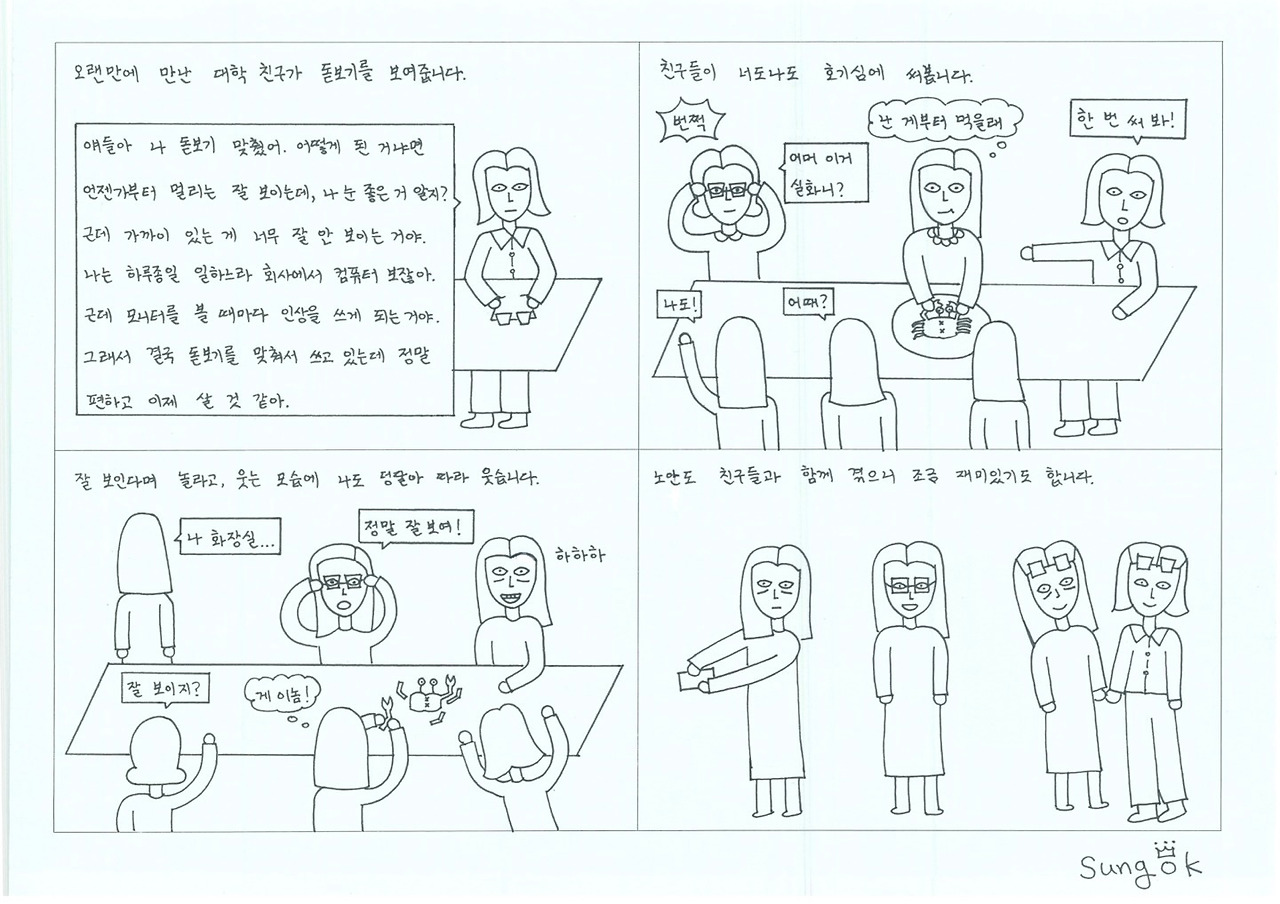 오랜만에 만난 대학 친구가 돋보기를 보여줍니다.
얘들아 나 돋보기 맞췄어. 어떻게 된 거냐면
언젠가부터 멀리는 잘 보이는데, 나 눈 좋은 거 알지?
근데 가까이 있는 게 너무 잘 안 보이는 거야.
나는 하루종일 일하느라 회사에서 컴퓨터 보잖아.
근데 모니터를 볼 때마다 인상을 쓰게 되는거야.
그래서 결국 돋보기를 맞춰서 쓰고 있는데 정말
편하고 이제 살 것 같아.
친구들이 너도나도 호기심에 써봅니다.
번쩍
어머 이거
실화니?
난 게부터 먹을래
한 번 써 봐!
나도!
어때?
잘 보인다며 놀라고, 웃는 모습에 나도 덩달아 따라 웃습니다.
나 화장실...
정말 잘 보여!
하하하
잘 보이지?
게 이놈!
노안도 친구들과 함께 겪으니 조금 재미있기도 합니다.
Sungok